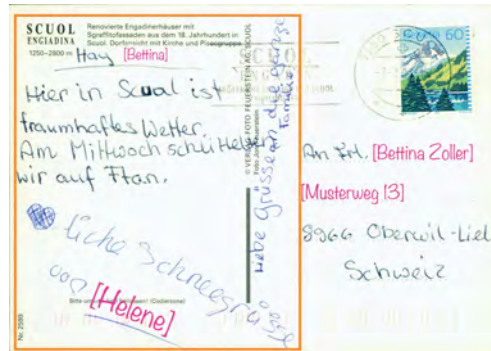 SCUOL
ENGIADINA
1250–2800 m
Renovierte Engadinerhäuser mit
Sgraffitofassaden aus dem 18. Jahrhundert in
Scuol. Dorfansicht mit Kirche und
Hay [Bettina]
Hier in Scual ist
traumhaftes Wetter.
Am Mittwoch
wir auf Ftan.
liche Schneegrüsse
von [Helene]
Liebe Grüsse an die ganze
Familie
© VERLAG FOTO FEUERSTEIN AG, SCUOL
Foto Jon Feuerstein
Nr. 2599
60
SCUOL
An Frl. [Bettina Zoller]
[Musterweg 13]
8966 Oberwil-Lieli
Schweiz